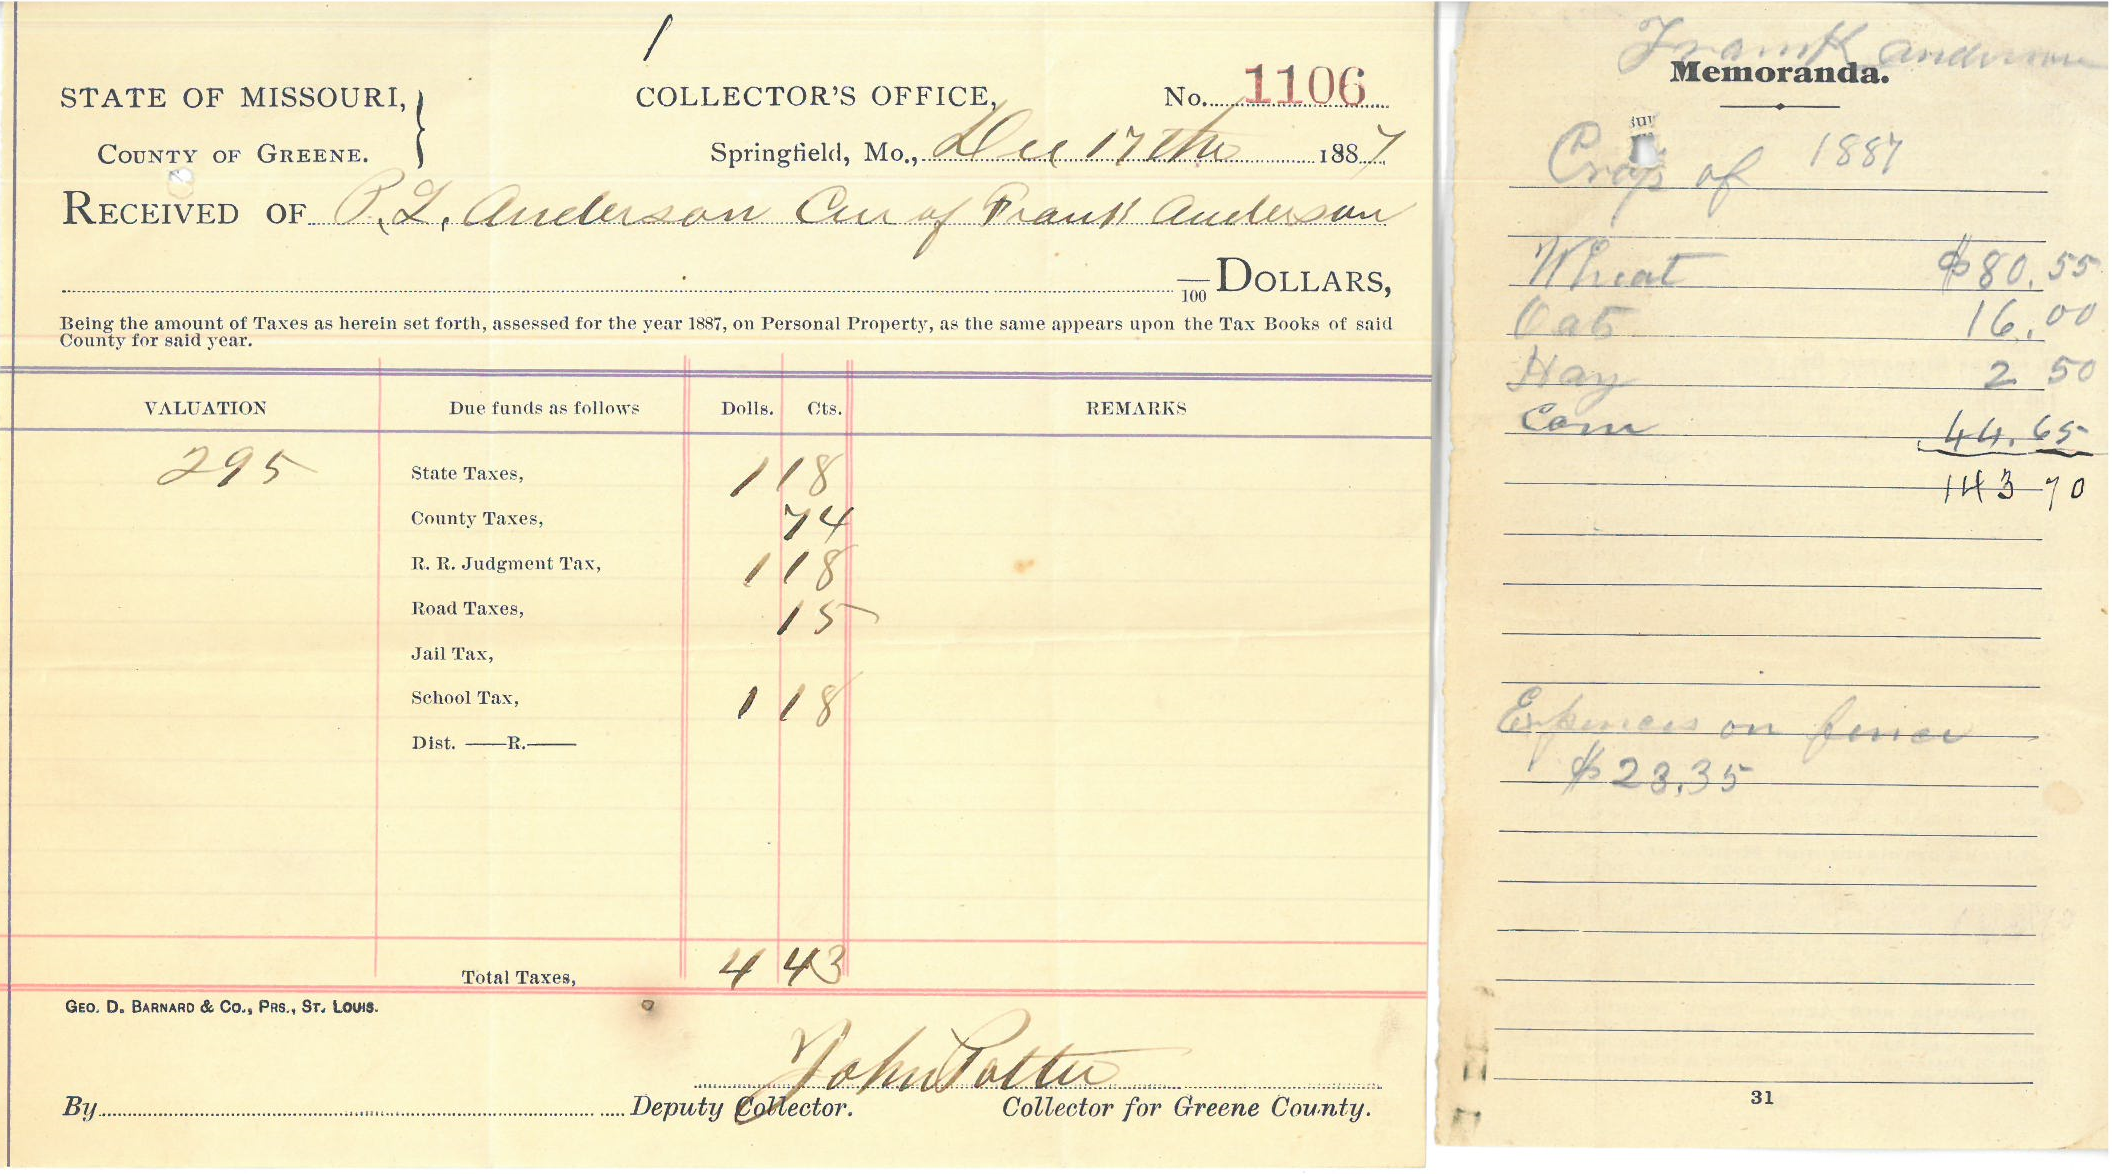 1
STATE OF MISSOURI, } COLLECTOR'S OFFICE, No. 1106
COUNTY OF GREENE. Springfield, Mo., Dec 17th 1887
RECEIVED OF P. L. Anderson Cur of Frank Anderson
/100 DOLLARS,
Being the amount of Taxes as herein set forth, assessed for the year 1887, on Personal Property, as the same appears upon the Tax Books of said
County for said year.
VALUATION Due funds as follows Dolls. Cts. REMARKS
295 State Taxes, 1 18
County Taxes, 74
R. R. Judgment Tax, 1 18
Road Taxes, 15
Jail Tax,
School Tax, 1 18
Dist. ——R.——
Total Taxes, 4 43
GEO. D. BARNARD & CO., PRS., ST. LOUIS.
John Potter
By Deputy Collector. Collector for Greene County.
Frank Anderson
Memoranda.
Crop of 1887
Wheat $80.55
Oats 16.00
Hay 2 50
Corn 44.65
143 70
Expences on fence
$23.35
31